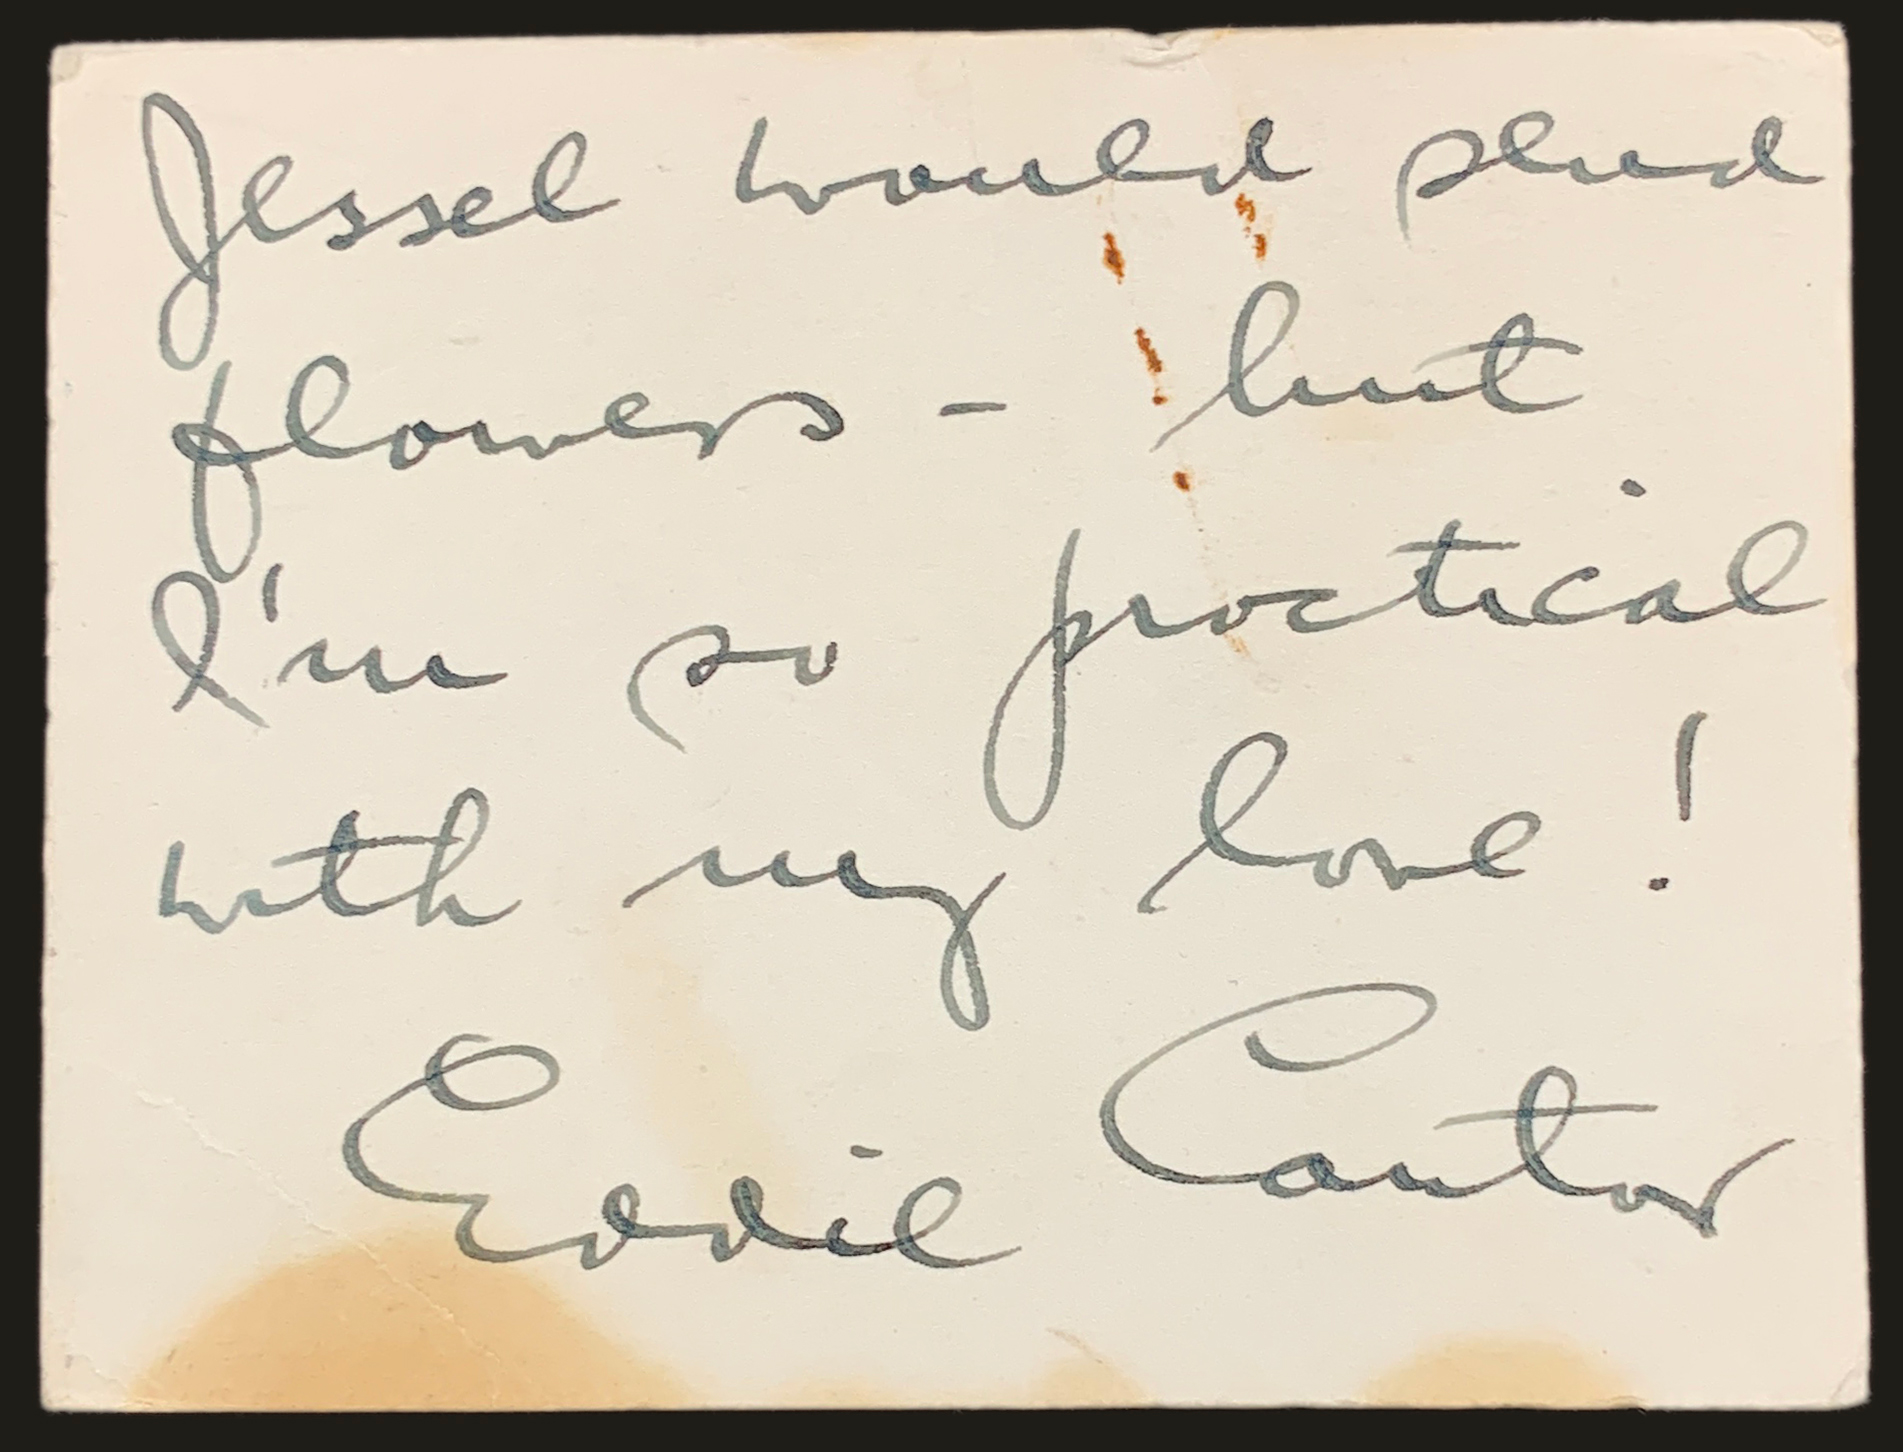 Jessel would send
flowers - but
I'm so practical
with my love!
Eddie Cantor